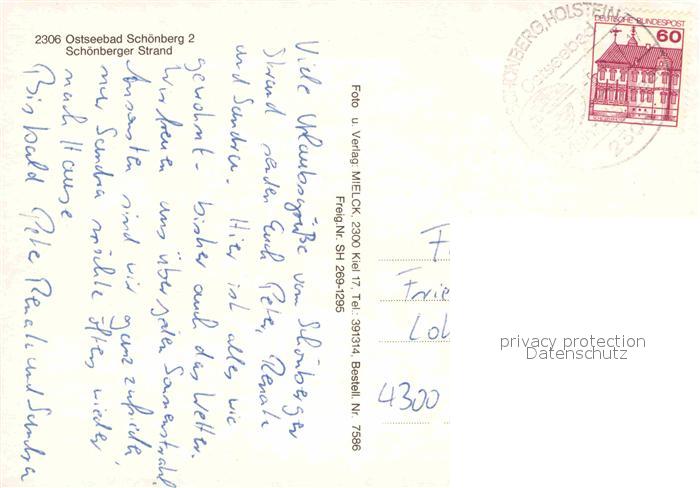 2306 Ostseebad Schönberg 2
Schönberger Strand
Viele Urlaubsgrüße vom Schönberger
Strand senden Euch Peter, Renate
und Sandra. Hier ist alles wie
gewohnt - bisher auch das Wetter.
Wir freuen uns über jeden Sonnenstrahl.
Ansonsten sind wir ganz zufrieden,
nur Sandra möchte öfters wieder
nach Hause
Bis bald Peter Renate und Sandra
Foto u. Verlag: MIELCK, 2300 Kiel 17, Tel.: 391314, Bestell. Nr. 7586
Freig.Nr. SH 269-1295
SCHÖNBERG, HOLSTEIN
Ostseebad
DEUTSCHE BUNDESPOST
60
F
Frie
Lob
4300
privacy protection
Datenschutz